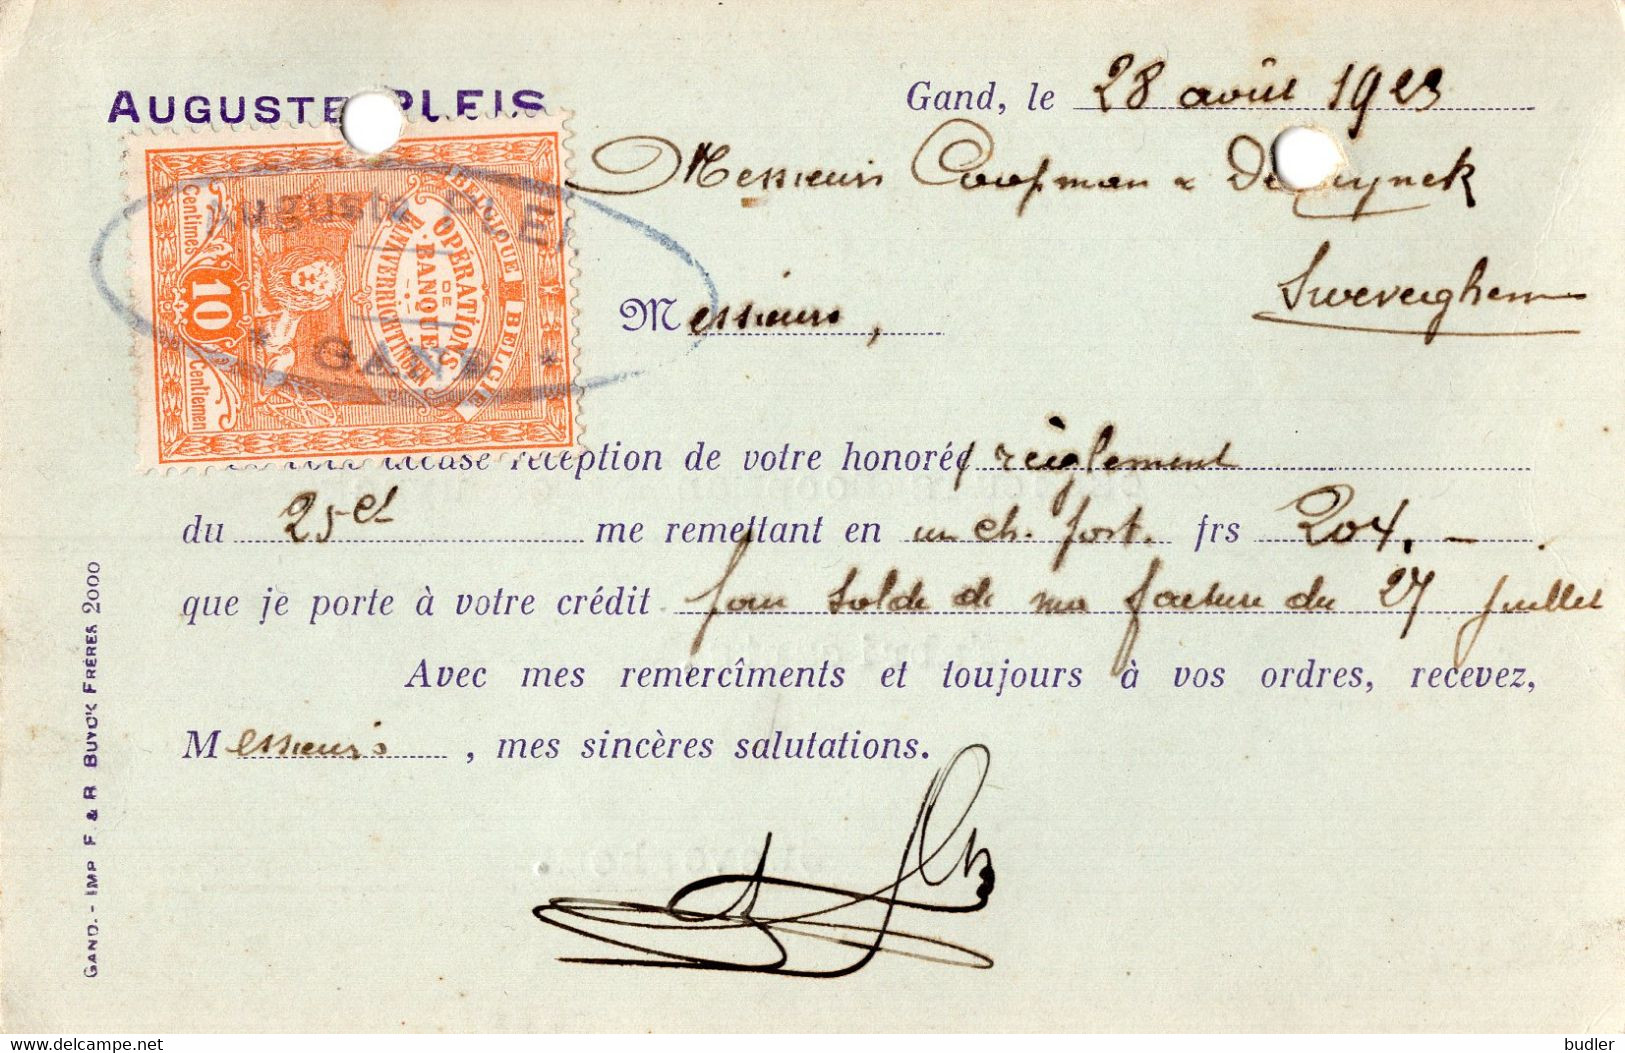 AUGUSTE PLEIS
Gand, le 28 août 1923
Messieurs Coopman &
Sweveghem
Messieurs,
BELGIQUE BELGIË
OPÉRATIONS
DE
BANQUE
BANKVERRICHTINGEN
Centimes 10 Centiemen
Auguste PLEI
* GAND *
réception de votre honoré règlement
du 25 ct me remettant en un ch. post. frs 204.-
que je porte à votre crédit pour solde de ma facture du 27 juillet
Avec mes remercîments et toujours à vos ordres, recevez,
Messieurs, mes sincères salutations.
GAND. - IMP F & R BUYCK FRÈRES 2000
delcampe.net
budler